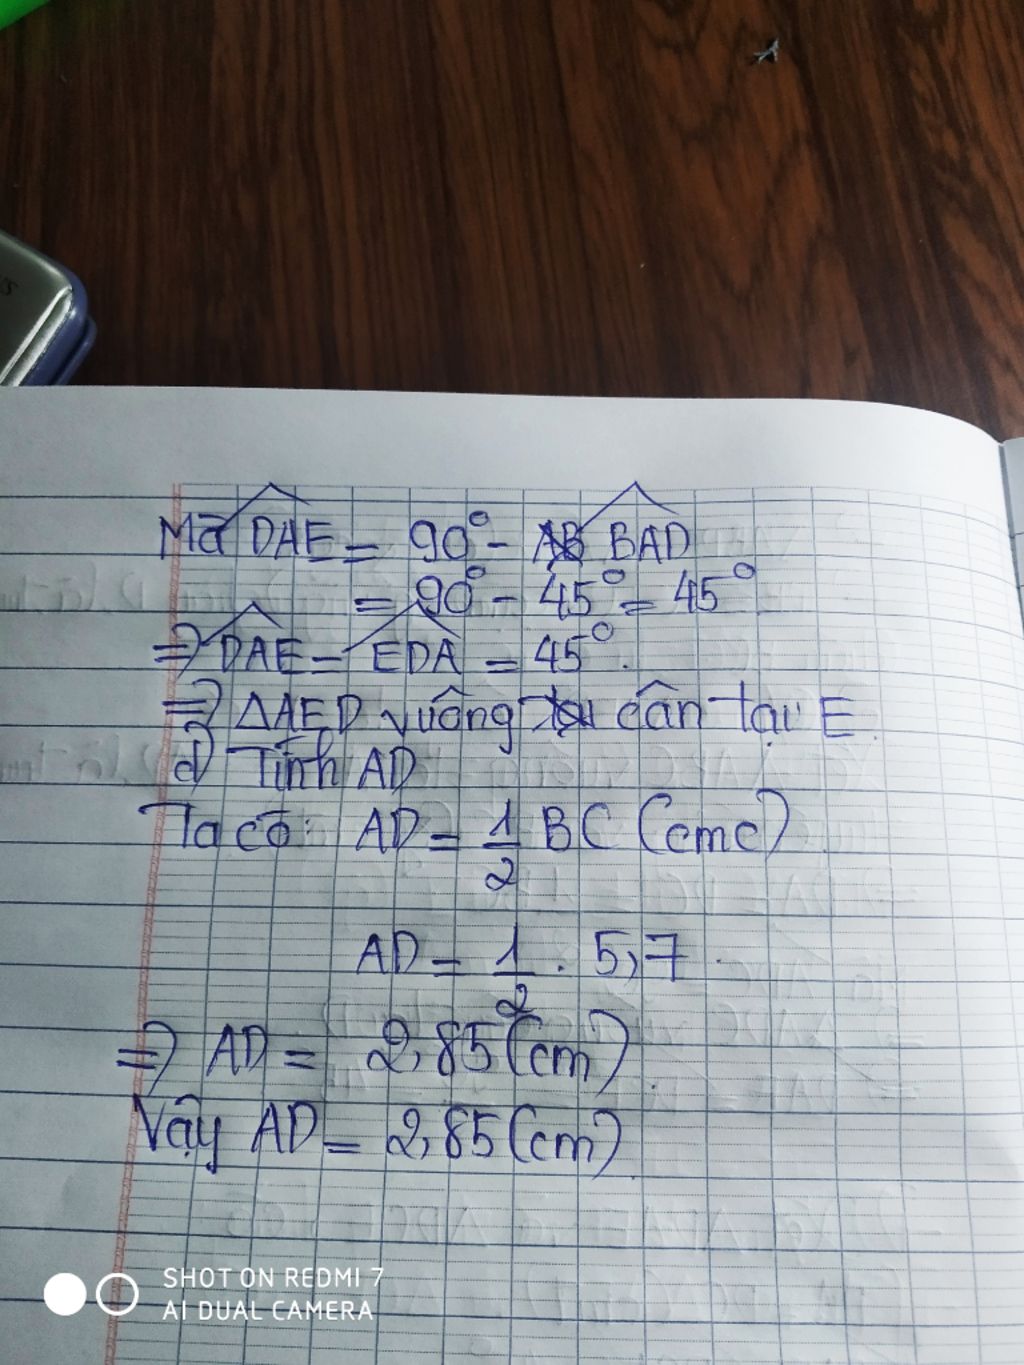 Mà DAE = 90° - BAD
= 90° - 45° = 45°.
⇒ DAE = EDA = 45°.
⇒ ΔAED vuông cân tại E.
d) Tính AD
Ta có: AD = 1/2 BC (cmc)
AD = 1/2 . 5,7
⇒ AD = 2,85 (cm).
Vậy AD = 2,85 (cm).
SHOT ON REDMI 7
AI DUAL CAMERA